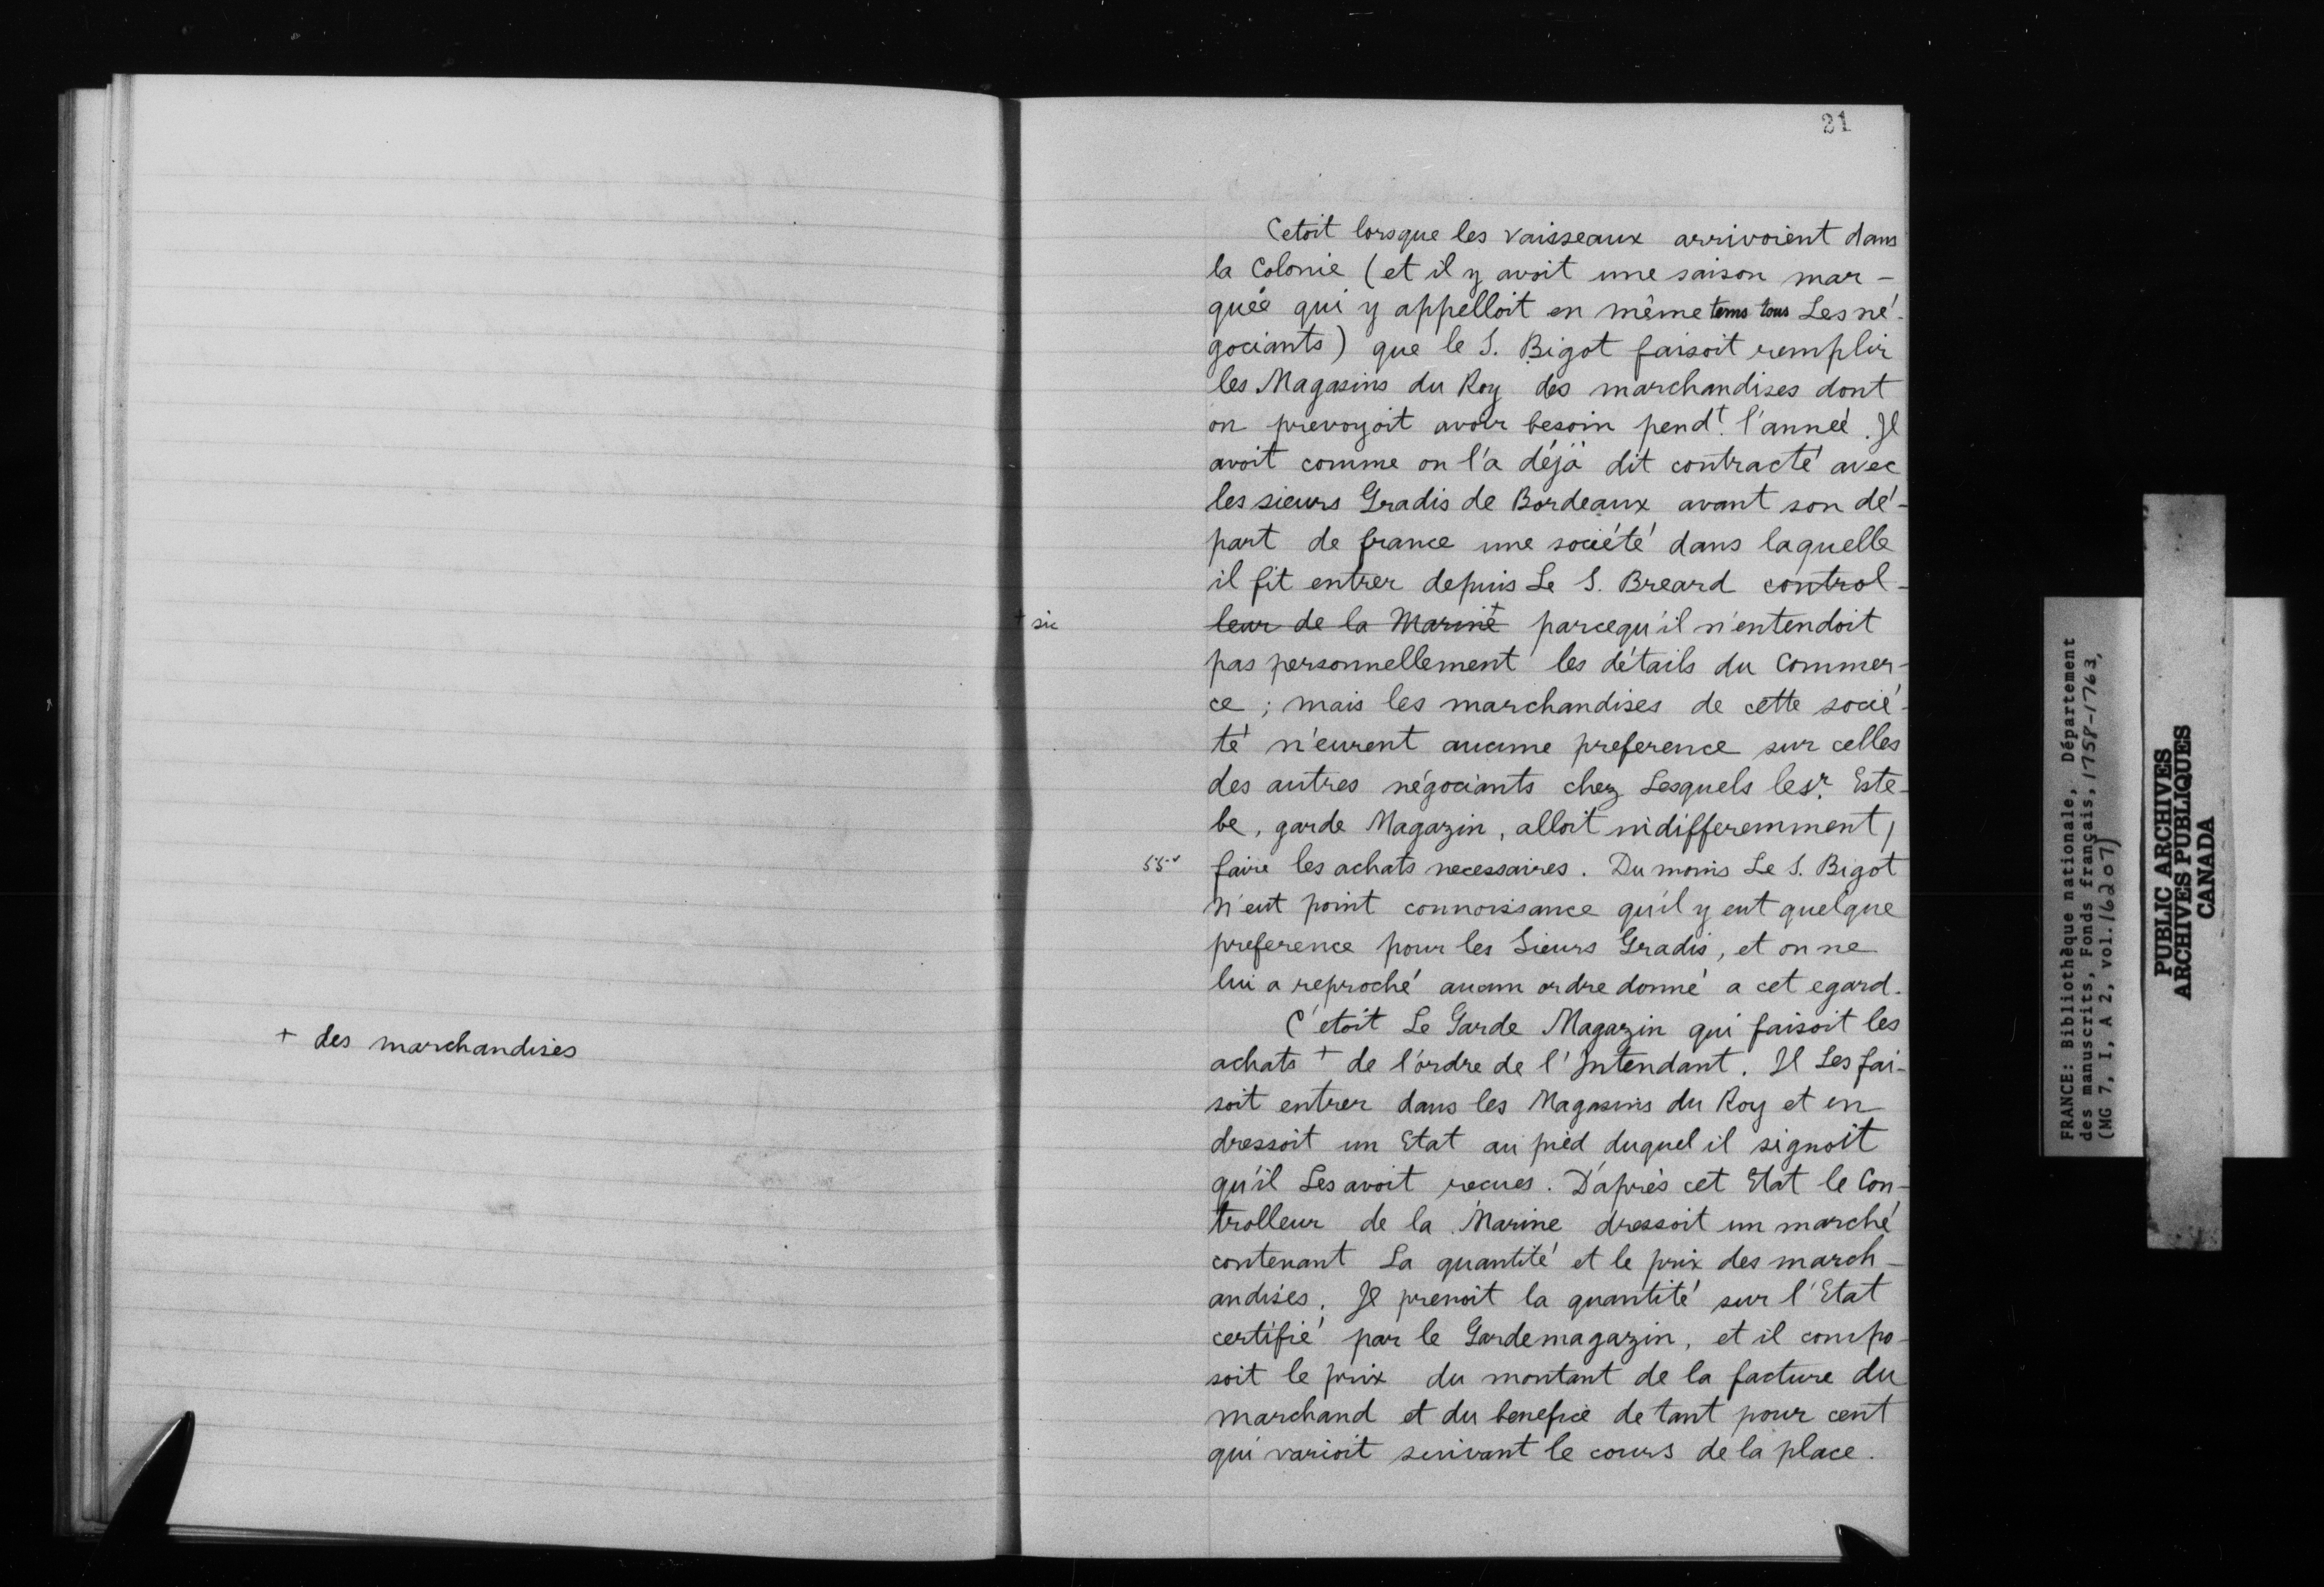 + des marchandises
21
Cetoit lorsque les vaisseaux arrivoient dans
la Colonie (et il y avoit une saison mar-
quée qui y appelloit en même tems tous Les né-
gociants) que le S. Bigot faisoit remplir
les Magasins du Roy des marchandises dont
on prevoyoit avoir besoin pendt. l'année. Il
avoit comme on l'a déjà dit contracté avec
les sieurs Gradis de Bordeaux avant son dé-
part de france une société dans laquelle
il fit entrer depuis Le S. Breard control-
+ sic
leur de la Marine + parcequ'il n'entendoit
pas personnellement les détails du Commer-
ce ; mais les marchandises de cette socié-
té n'eurent aucune preference sur celles
des autres négociants chez Lesquels le Sr. Este-
be, garde Magazin, alloit indifferemment /
55v
faire les achats necessaires. Du moins Le S. Bigot
n'eut point connoissance qu'il y eut quelque
preference pour les Sieurs Gradis, et on ne
lui a reproché aucun ordre donné a cet egard.
C'etoit Le Garde Magazin qui faisoit les
achats + de l'ordre de l'Intendant. Il Les fai-
soit entrer dans les Magasins du Roy et en
dressoit un Etat au pied duquel il signoit
qu'il Les avoit recues. D'aprés cet Etat le Con-
trolleur de la Marine dressoit un marché
contenant La quantité et le prix des march-
andises. Il prenoit la quantité sur l'Etat
certifié par le Gardemagazin, et il compo-
soit le prix du montant de la facture du
marchand et du benefice de tant pour cent
qui varioit suivant le cours de la place.
FRANCE: Bibliothèque nationale, Département
des manuscrits, Fonds français, 1758-1763,
(MG 7, I, A 2, vol. 16207)
PUBLIC ARCHIVES
ARCHIVES PUBLIQUES
CANADA